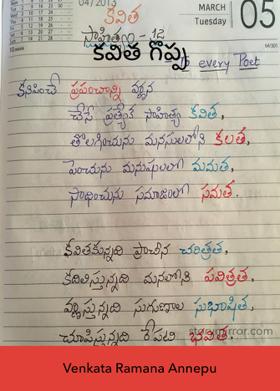 04/2013
MARCH
Tuesday
05
కవిత
సాహిత్యం - 12
కవిత గొప్ప
to every Poet
కనిపించే ప్రపంచాన్ని వర్ణన
చేసే ప్రత్యేక సాహిత్య కవిత,
తొలగించును మనసులలోని కలత,
పెంచును మనుషులలో మమత,
సాధించును సమాజంలో సమత.
కవితకున్నది ప్రాచీన చరిత్రత,
కదిలిస్తున్నది మనలోతి పవిత్రత,
వర్ణిస్తున్నది సుగుణాల సుభాషిత,
చూపిస్తున్నది రేపటి భవిత.
Venkata Ramana Annepu